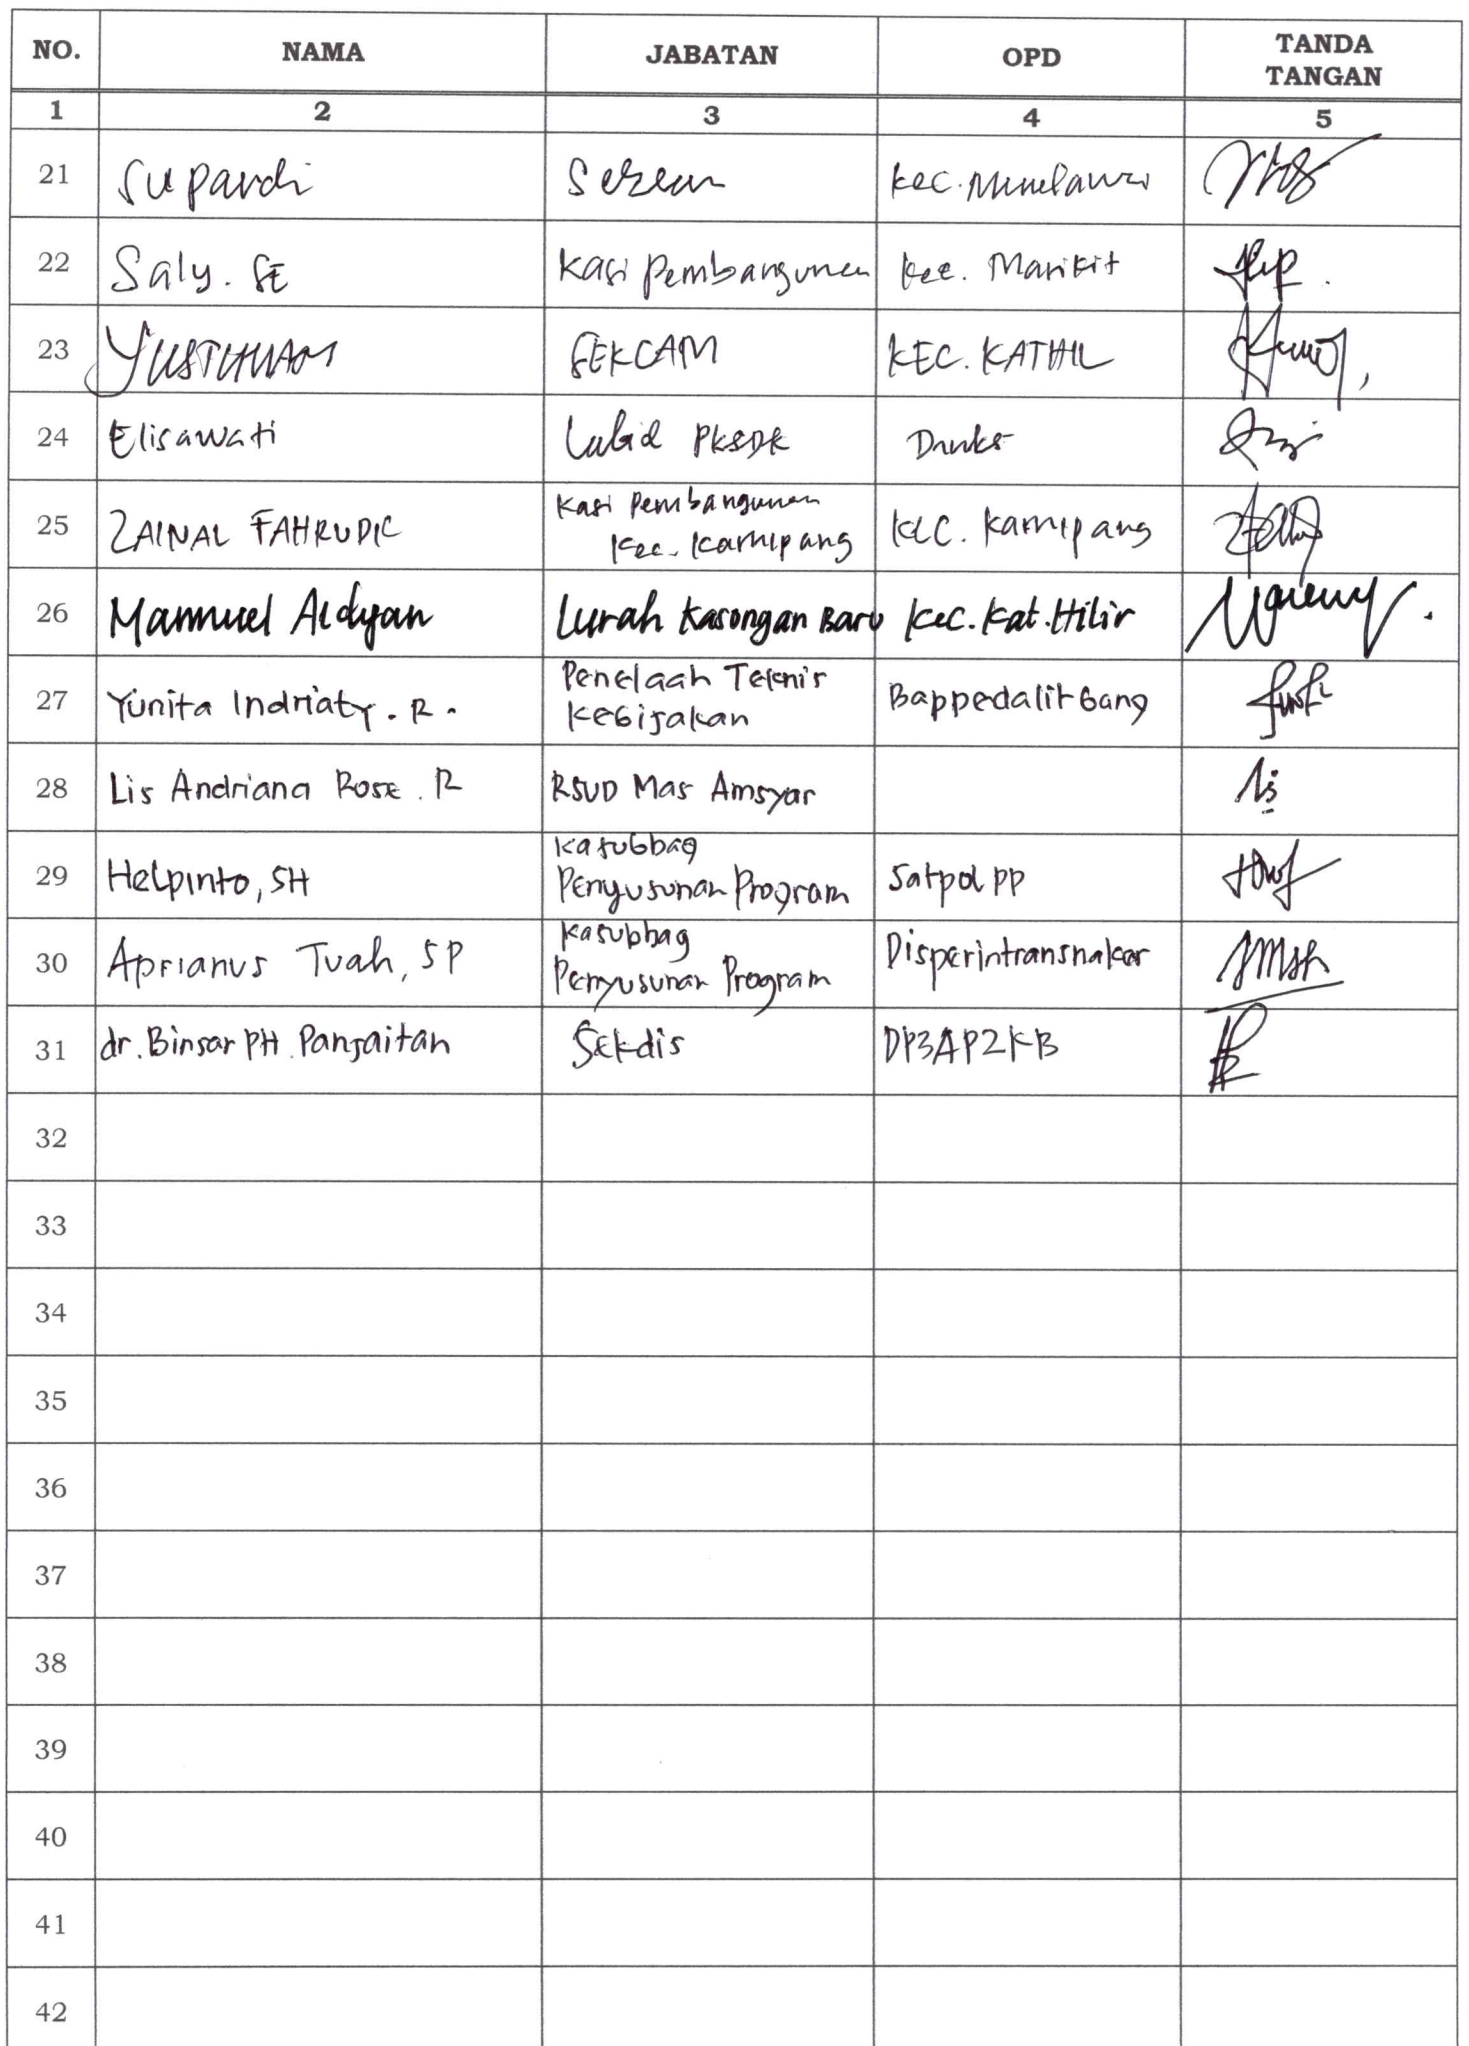 NO. NAMA JABATAN OPD TANDA TANGAN
1 2 3 4 5
21 Supardi Kec.
22 Saly. SE Kasi Pembangunan Kec. Marikit
23 SEKCAM KEC. KATHIL
24 Elisawati PKSDK
25 ZAINAL FAHRUDIC Kasi Pembangunan
Kec. Kamipang KEC. Kamipang
26 Manuel Aldyan Lurah Kasongan Baru Kec. Kat. Hilir
27 Yunita Indriaty. R. Penelaah Teknis
Kebijakan Bappedalitbang
28 Lis Andriana Rose. R RSUD Mas Amsyar
29 Helpinto, SH Kasubbag
Penyusunan Program Satpol PP
30 Aprianus Tuah, SP Kasubbag
Penyusunan Program Disperintransnaker
31 dr. Binsar PH. Panjaitan Sekdis DP3AP2KB
32
33
34
35
36
37
38
39
40
41
42